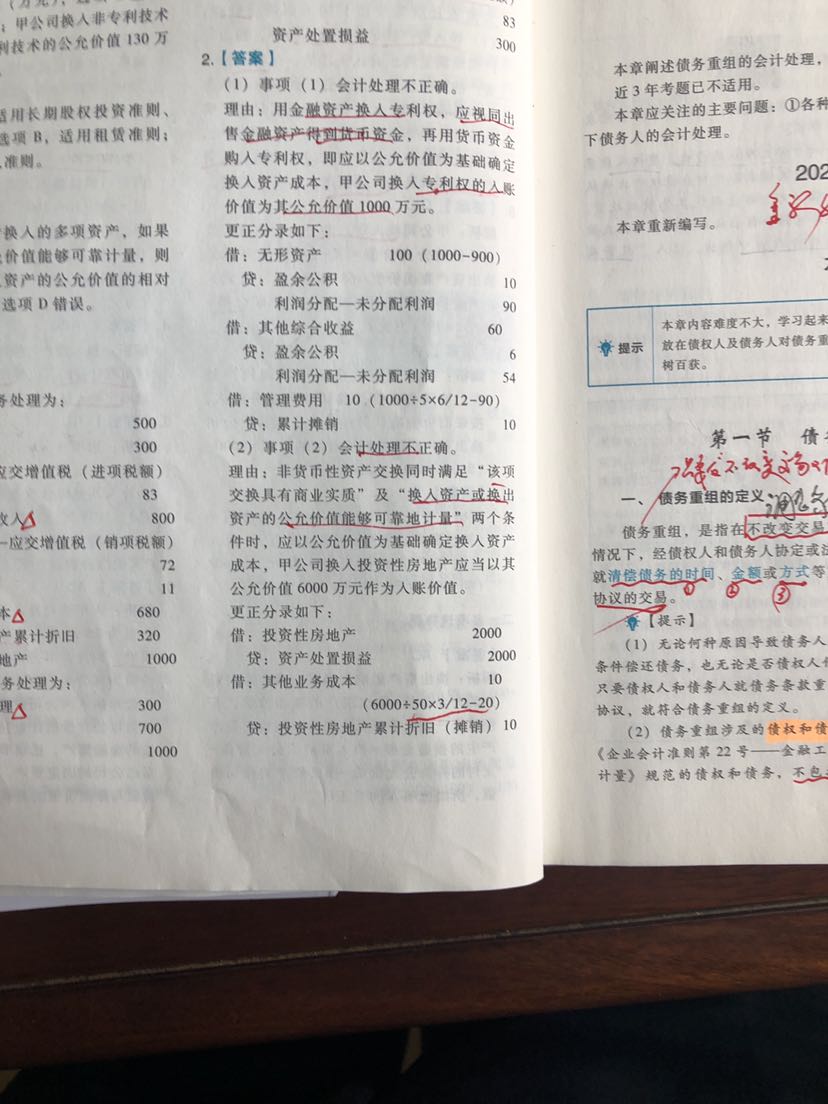 ；甲公司换入非专利技术
利技术的公允价值130万
适用长期股权投资准则、
选项B，适用租赁准则；
准则。
换入的多项资产，如果
价值能够可靠计量，则
资产的公允价值的相对
选项D错误。
务处理为：
500
300
应交增值税（进项税额）
83
收入 800
—应交增值税（销项税额）
72
11
本 680
产累计折旧 320
地产 1000
务处理为：
理 300
700
1000
83
资产处置损益 300
2.【答案】
（1）事项（1）会计处理不正确。
理由：用金融资产换入专利权，应视同出
售金融资产得到货币资金，再用货币资金
购入专利权，即应以公允价值为基础确定
换入资产成本，甲公司换入专利权的入账
价值为其公允价值1000万元。
更正分录如下：
借：无形资产 100（1000-900）
贷：盈余公积 10
利润分配—未分配利润 90
借：其他综合收益 60
贷：盈余公积 6
利润分配—未分配利润 54
借：管理费用 10（1000÷5×6/12-90）
贷：累计摊销 10
（2）事项（2）会计处理不正确。
理由：非货币性资产交换同时满足“该项
交换具有商业实质”及“换入资产或换出
资产的公允价值能够可靠地计量”两个条
件时，应以公允价值为基础确定换入资产
成本，甲公司换入投资性房地产应当以其
公允价值6000万元作为入账价值。
更正分录如下：
借：投资性房地产 2000
贷：资产处置损益 2000
借：其他业务成本 10
（6000÷50×3/12-20）
贷：投资性房地产累计折旧（摊销） 10
本章阐述债务重组的会计处理，
近3年考题已不适用。
本章应关注的主要问题：①各种
下债务人的会计处理。
202
本章重新编写。
提示
本章内容难度不大，学习起来
放在债权人及债务人对债务重
树百获。
第一节 债
一、债务重组的定义
债务重组，是指在不改变交易
情况下，经债权人和债务人协定或法
就清偿债务的时间、金额或方式等
① ② ③
协议的交易。
【提示】
（1）无论何种原因导致债务人
条件偿还债务，也无论是否债权人
只要债权人和债务人就债务条款重
协议，就符合债务重组的定义。
（2）债务重组涉及的债权和债
《企业会计准则第22号——金融工
计量》规范的债权和债务，不包